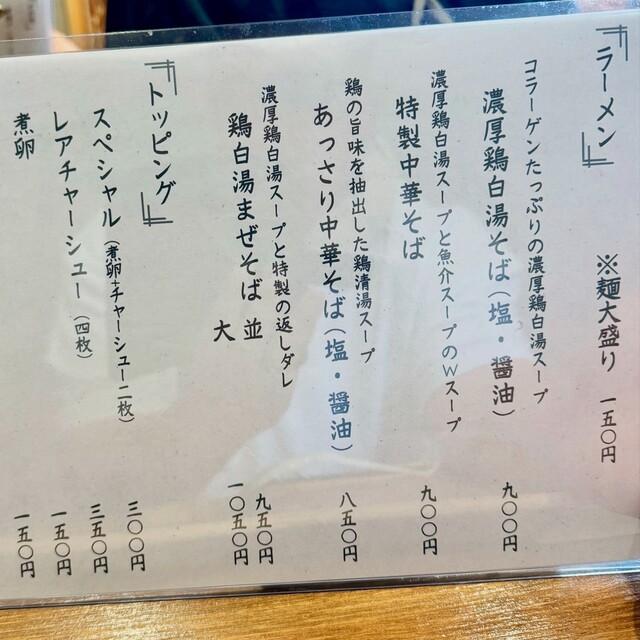 ラーメン ※麺大盛り 一五〇円
コラーゲンたっぷりの濃厚鶏白湯スープ
濃厚鶏白湯そば（塩・醤油） 九〇〇円
濃厚鶏白湯スープと魚介スープのWスープ
特製中華そば 九〇〇円
鶏の旨味を抽出した鶏清湯スープ
あっさり中華そば（塩・醤油） 八五〇円
濃厚鶏白湯スープと特製の返しダレ
鶏白湯まぜそば 並 九五〇円
大 一〇五〇円
トッピング
スペシャル（煮卵+チャーシュー二枚） 三〇〇円
レアチャーシュー（四枚） 三五〇円
煮卵 一五〇円
一五〇円